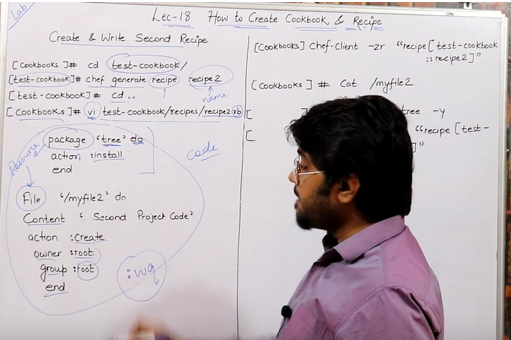 Lab
Lec-18 How to Create Cookbook & Recipe
Create & Write Second Recipe
[Cookbooks]# cd test-cookbook/
[test-cookbook]# chef generate recipe recipe2
name
[test-cookbook]# cd ..
[Cookbooks]# vi test-cookbook/recipes/recipe2.rb
Resource
package 'tree' do
action :install
end
code
File '/myfile2' do
Content 'Second Project Code'
action :create
owner :root
group :root
end
:wq
[Cookbooks] chef-client -zr "recipe[test-cookbook
::recipe2]"
[Cookbooks]# Cat /myfile2
tree -y
"recipe [test-
]"